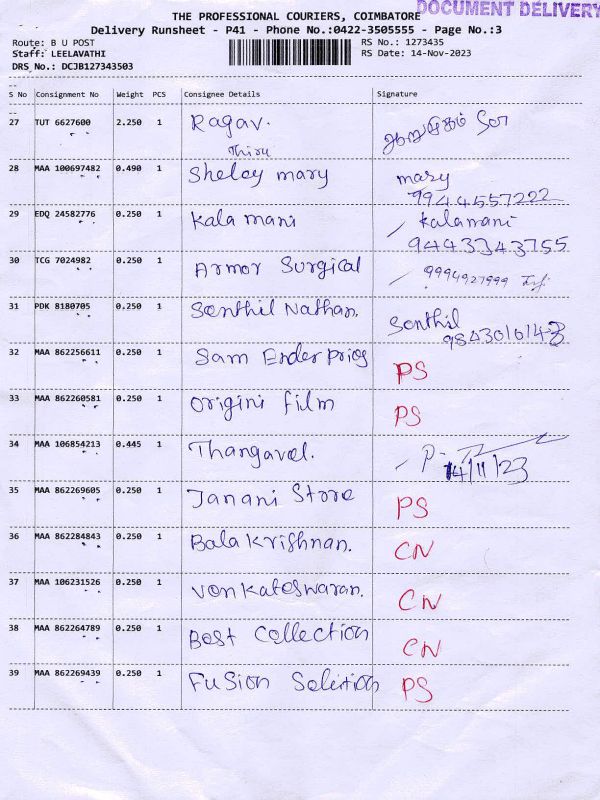 DOCUMENT DELIVERY
THE PROFESSIONAL COURIERS, COIMBATORE
Delivery Runsheet - P41 - Phone No.:0422-3505555 - Page No.:3
Route: B U POST
RS No.: 1273435
Staff: LEELAVATHI
RS Date: 14-Nov-2023
DRS No.: DCJB127343503
S No Consignment No Weight PCS Consignee Details Signature
27 TUT 6627600 2.250 1 Ragav.
Thiru
28 MAA 100697482 0.490 1 Sheley mary mary
9944557222
29 EDQ 24582776 0.250 1 Kala mani kalamani
9443343755
30 TCG 7024982 0.250 1 Armor Surgical 9994927999
31 PDK 8180705 0.250 1 Senthil Nathan. Senthil
32 MAA 862256611 0.250 1 Sam Enderprios PS
33 MAA 862260581 0.250 1 Origini film PS
34 MAA 106854213 0.445 1 Thangavel. P.
14/11/23
35 MAA 862269605 0.250 1 Janani Store PS
36 MAA 862284843 0.250 1 Bala Krishnan. CN
37 MAA 106231526 0.250 1 Venkateswaran. CN
38 MAA 862264789 0.250 1 Best Collection CN
39 MAA 862269439 0.250 1 Fusion Selection PS